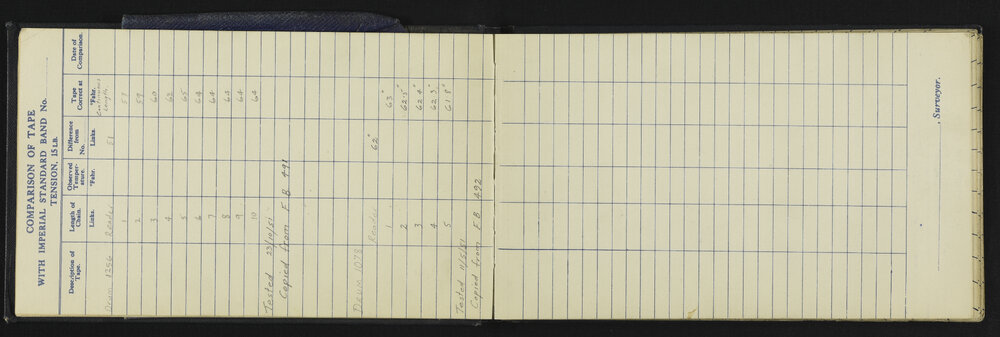 COMPARISON OF TAPE
WITH IMPERIAL STANDARD BAND No.
TENSION, 15 LB.
Description of Tape. Length of Chain. Observed Temper-ature. Difference from No. Tape Correct at Date of Comparison.
Links. °Fahr. Links. °Fahr.
Continuous Length.
Drum 1256 Reader 51
1 57
2 59
3 60
4 62
5 65
6 64
7 64
8 63
9 64
10 64
Tested 23/10/51
Copied from F B 491
Drum 1078
Reader 62°
1 63°
2 62.5°
3 62.4°
4 62.3°
5 61.8°
Tested 11/5/51
Copied from F B 492
Surveyor.